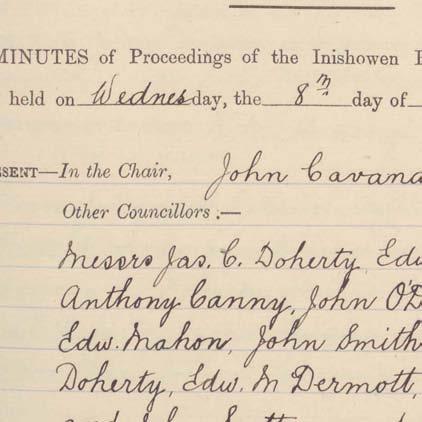 MINUTES of Proceedings of the Inishowen
held on Wednesday, the 8th day of
ESENT—In the Chair, John Cavana
Other Councillors :—
Messrs Jas. C. Doherty, Edw
Anthony Canny, John O'D
Edw. Mahon, John Smith
Doherty, Edw. McDermott,
and John